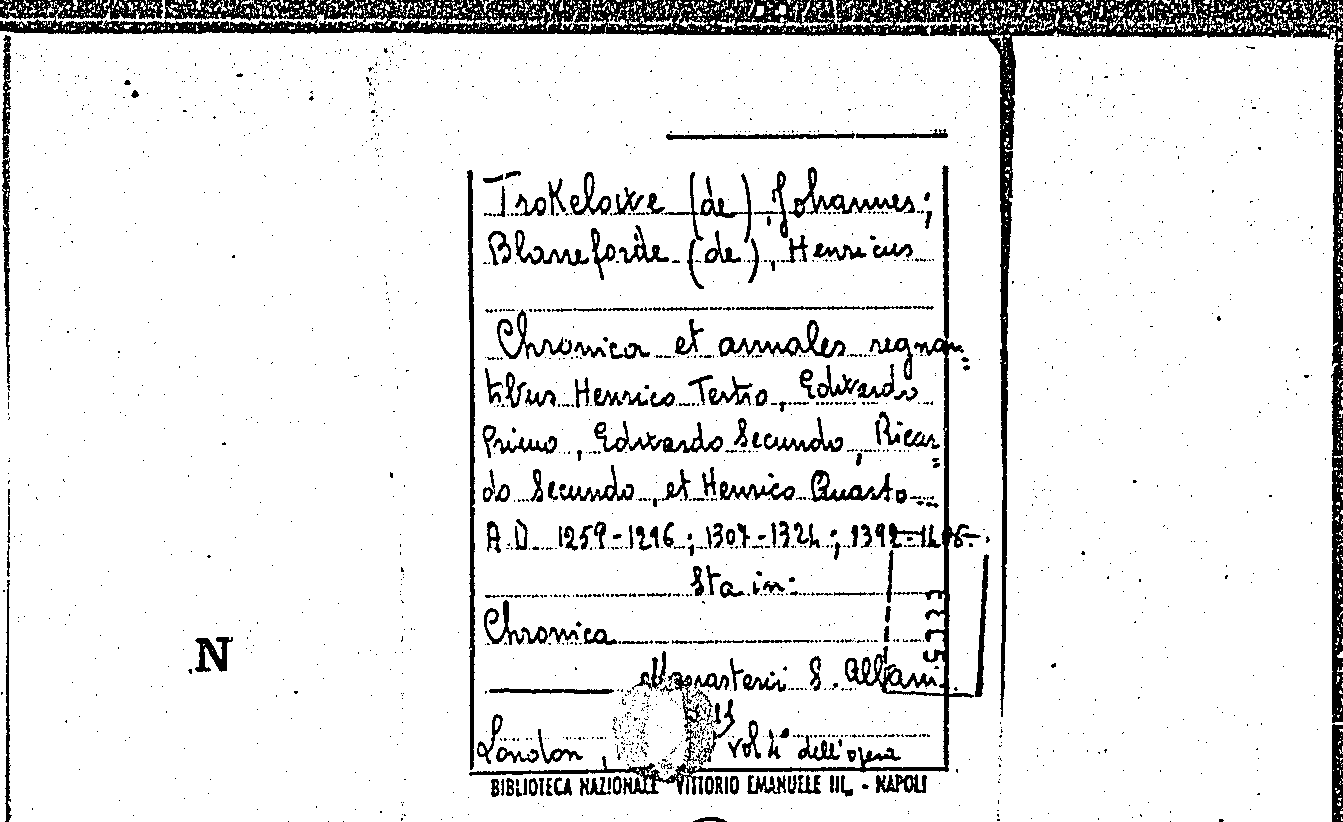 Trokelowe (de), Johannes;
Blaneforde (de), Henricus
Chronica et annales regnan=
tibus Henrico Tertio, Edwardo
Primo, Edwardo Secundo, Ricar=
do Secundo, et Henrico Quarto
A.D. 1259-1296; 1307-1324; 1392-1406.
Sta in:
Chronica
Monasterii S. Albani.
London, vol 4° dell'opera
BIBLIOTECA NAZIONALE VITTORIO EMANUELE III - NAPOLI
N